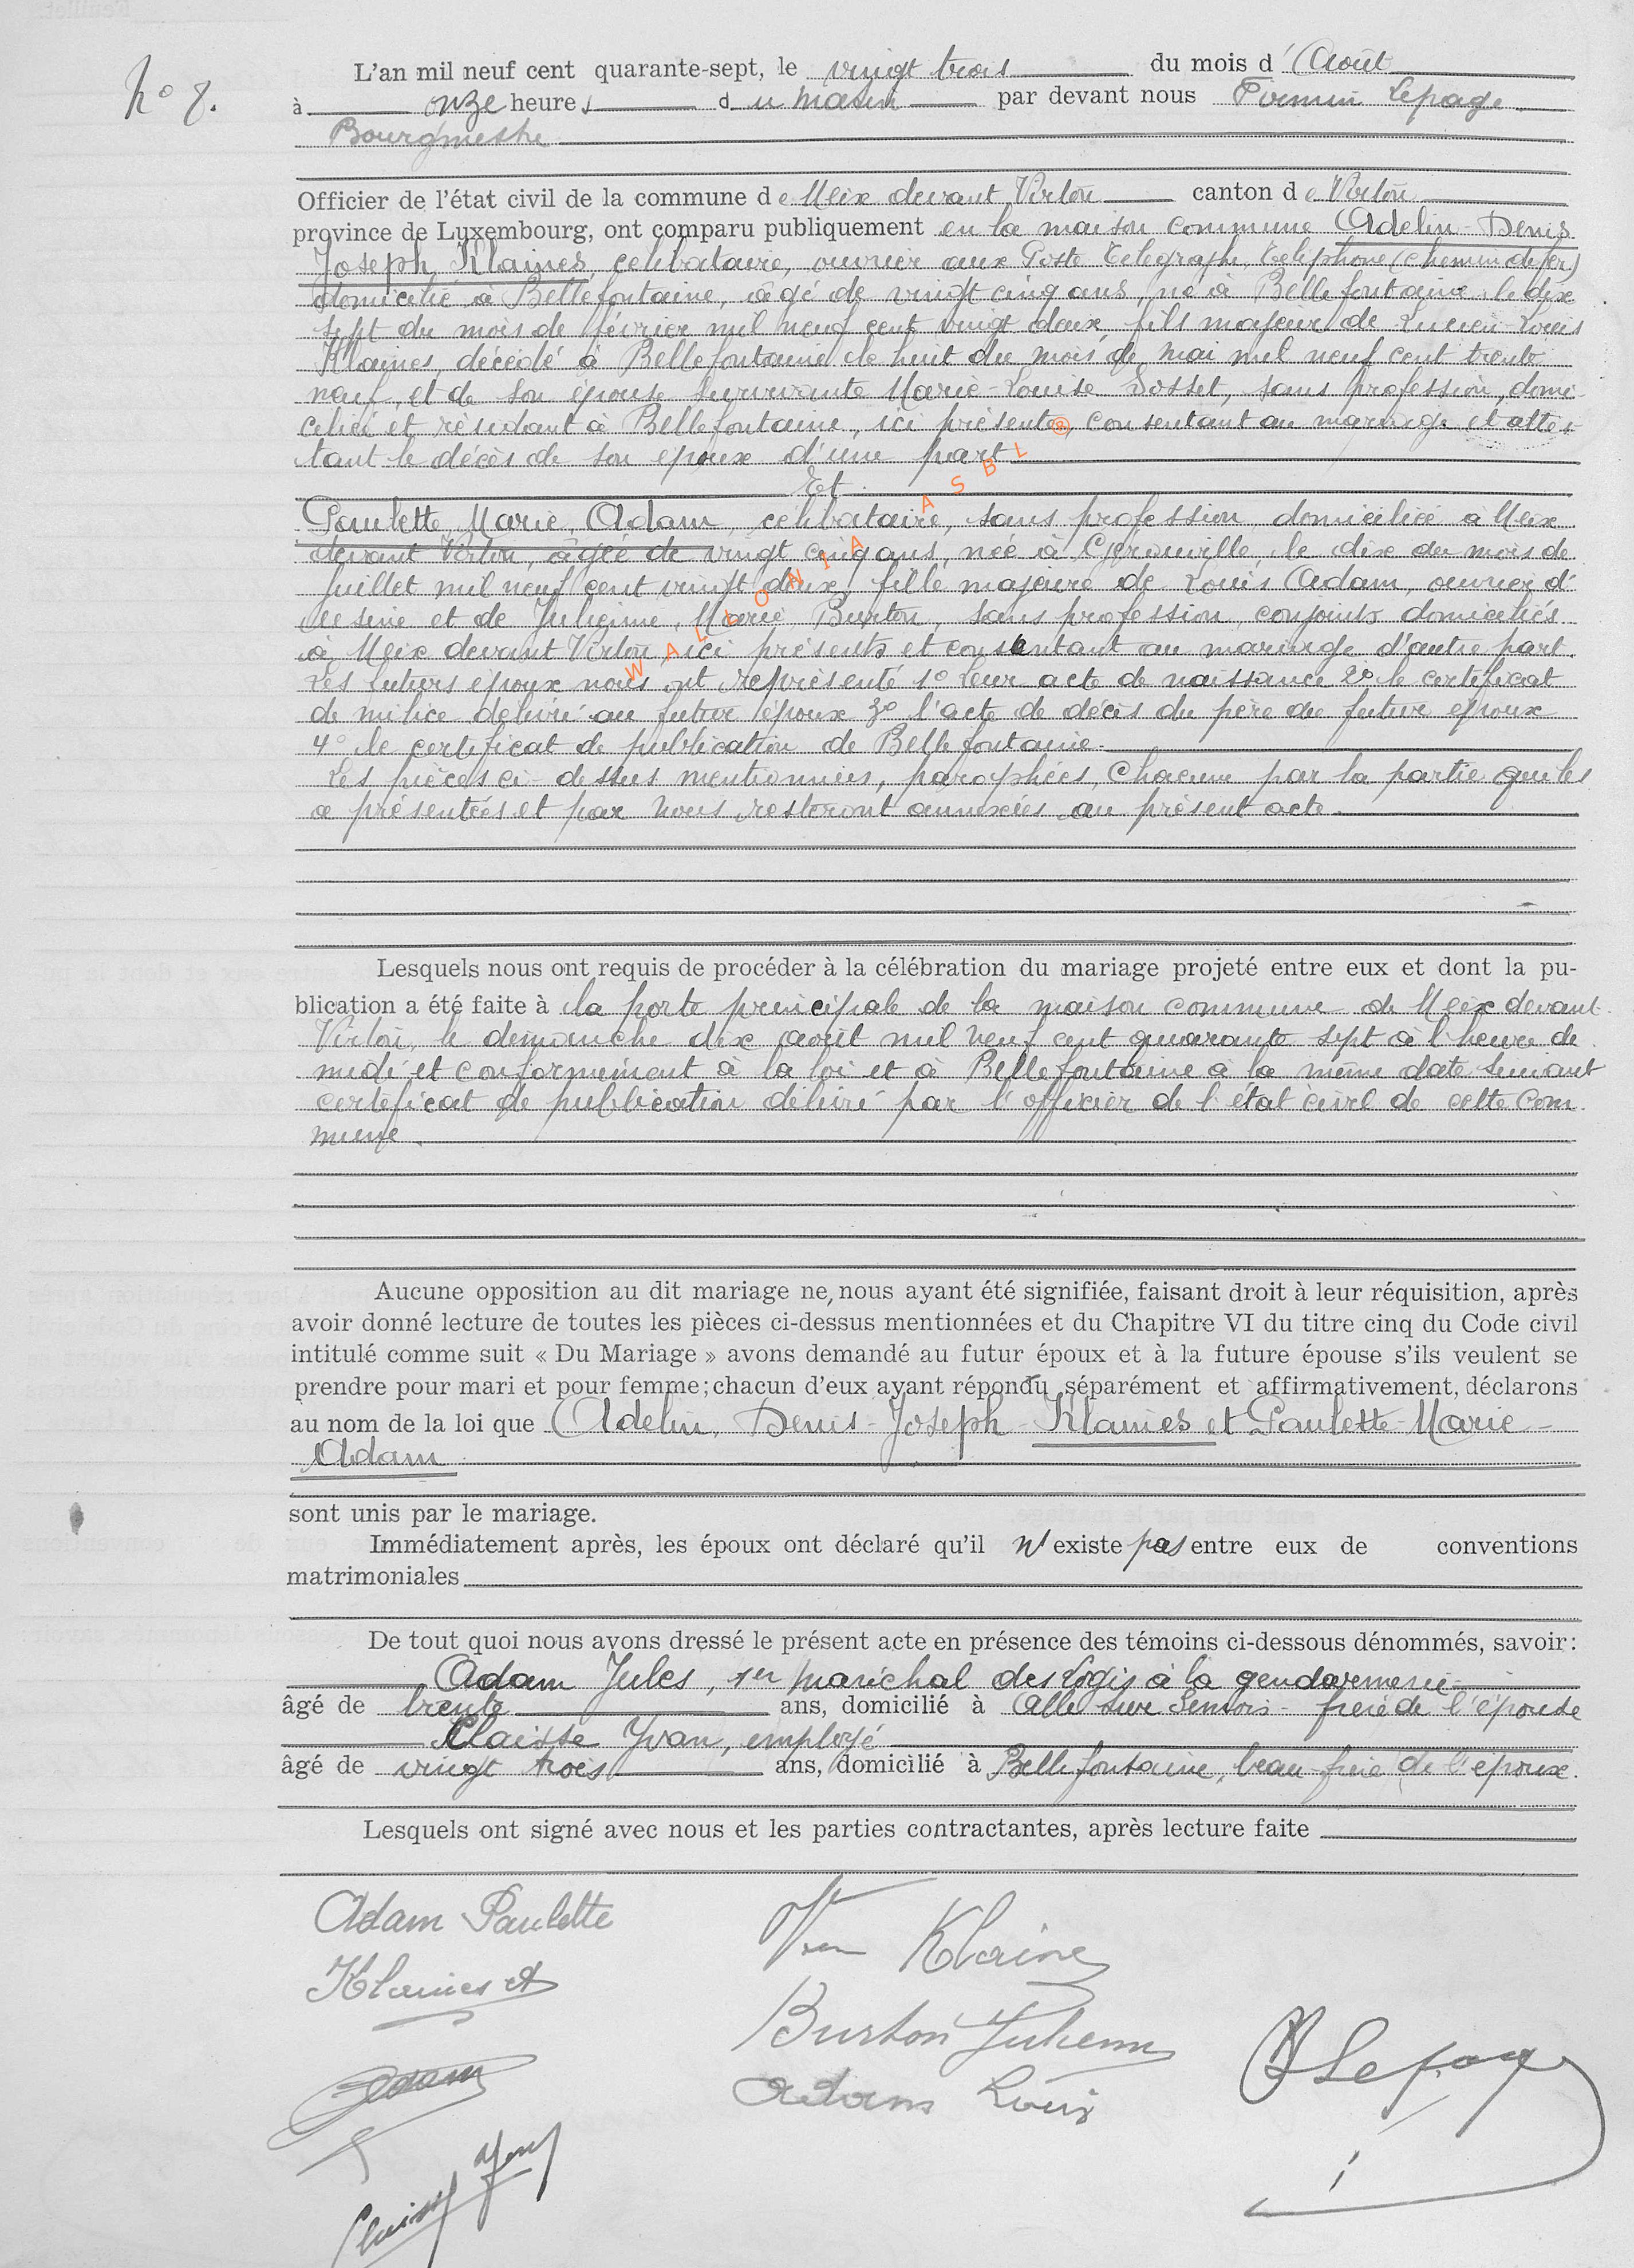 N° 8.
L'an mil neuf cent quarante-sept, le vingt trois du mois d'Août
à onze heures du matin par devant nous Firmin Lepage
Bourgmestre
Officier de l'état civil de la commune de Meix devant Virton canton de Virton
province de Luxembourg, ont comparu publiquement en la maison commune Adelin-Denis
Joseph, Klaines, célibataire, ouvrier aux Poste Télégraphe, Téléphone (chemin de fer)
domicilié à Bellefontaine, âgé de vingt cinq ans, né à Bellefontaine le dix
sept du mois de février mil neuf cent vingt deux, fils majeur de Lucien-Louis
Klaines, décédé à Bellefontaine le huit du mois de mai mil neuf cent trente
neuf, et de son épouse survivante Marie-Louise Sosset, sans profession, domi-
ciliée et résidant à Bellefontaine, ici présente, consentant au mariage et attes-
tant le décès de son époux d'une part
Et
Paulette, Marie, Adam, célibataire, sans profession domiciliée à Meix
devant Virton, âgée de vingt cinq ans, née à Gérouville, le dix du mois de
Juillet mil neuf cent vingt deux, fille majeure de Louis Adam, ouvrier d'
usine et de Julienne, Marie Burton, sans profession, conjoints domiciliés
à Meix devant Virton, ici présents et consentant au mariage d'autre part.
Les futurs époux nous ont représenté 1° leur acte de naissance 2° le certificat
de milice délivré au futur époux 3° l'acte de décès du père du futur époux
4° le certificat de publication de Bellefontaine.
Les pièces ci-dessus mentionnées, paraphées, chacune par la partie qui les
a présentées et par nous resteront annexées au présent acte.
WALLONIA ASBL ®
Lesquels nous ont requis de procéder à la célébration du mariage projeté entre eux et dont la pu-
blication a été faite à la porte principale de la maison commune de Meix devant
Virton, le dimanche dix août mil neuf cent quarante sept à l'heure de
midi et conformément à la loi et à Bellefontaine à la même date suivant
certificat de publication délivré par l'officier de l'état civil de cette com
mune.
Aucune opposition au dit mariage ne nous ayant été signifiée, faisant droit à leur réquisition, après
avoir donné lecture de toutes les pièces ci-dessus mentionnées et du Chapitre VI du titre cinq du Code civil
intitulé comme suit « Du Mariage » avons demandé au futur époux et à la future épouse s'ils veulent se
prendre pour mari et pour femme; chacun d'eux ayant répondu séparément et affirmativement, déclarons
au nom de la loi que Adelin, Denis-Joseph-Klaines et Paulette-Marie-
Adam
sont unis par le mariage.
Immédiatement après, les époux ont déclaré qu'il n'existe pas entre eux de conventions
matrimoniales
De tout quoi nous avons dressé le présent acte en présence des témoins ci-dessous dénommés, savoir:
Adam Jules, 1er maréchal des logis à la gendarmerie
âgé de trente ans, domicilié à Alle sur Semois - frère de l'épouse
Claisse Yvan, employé
âgé de vingt trois ans, domicilié à Bellefontaine, beau-frère de l'époux.
Lesquels ont signé avec nous et les parties contractantes, après lecture faite
Adam Paulette
Klaines A
Adam
Claisse Yvan
Klaine
Burton Julienne
Adam Louis
Lepage